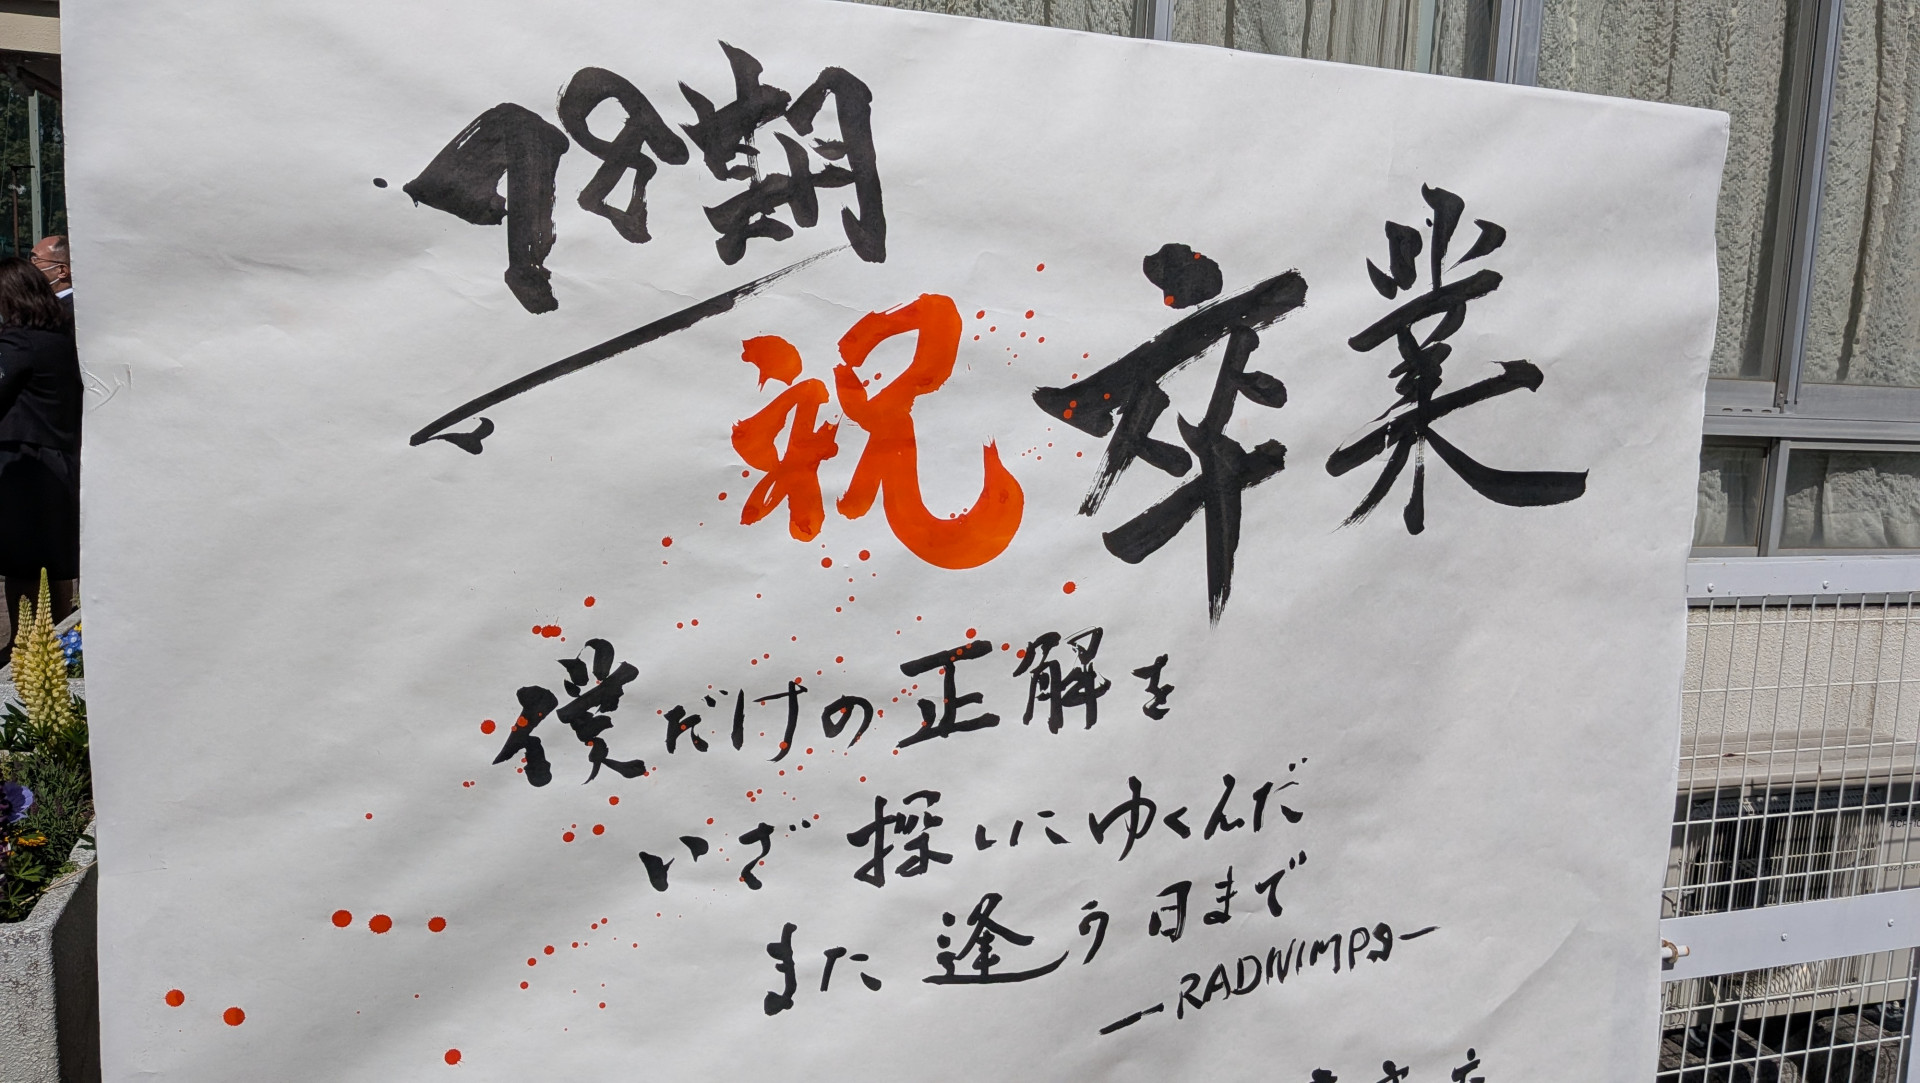 78期
祝卒業
僕だけの正解を
いざ探しにゆくんだ
また逢う日まで
—RADWIMPS—